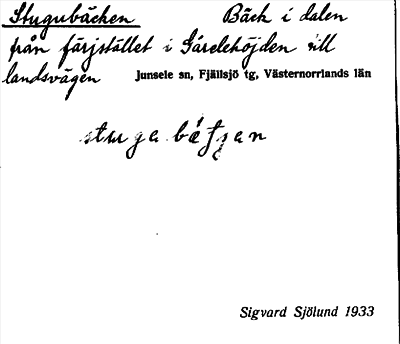 Stugubäcken Bäck i dalen
från färjstället i Gårdehöjden till
landsvägen Junsele sn, Fjällsjö tg, Västernorrlands län
Sigvard Sjölund 1933